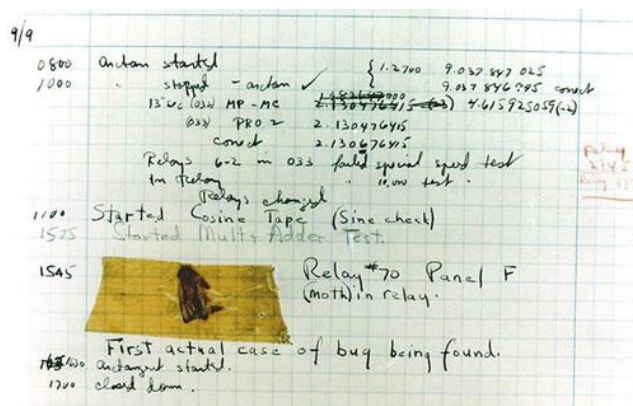 9/9
0800 antan started
1000 " stopped - antan ✓ { 1.2700 9.037 847 025
9.037 846 995 conect
13"uc (032) MP - MC 2.130476415 (-3) 4.615925059(-2)
(033) PRO 2 2.130476415
conect 2.130676415
Relays 6-2 in 033 failed special speed test
In Relay " 10.000 test .
Relays changed
1100 Started Cosine Tape (Sine check)
1525 Started Mult + Adder Test.
1545 Relay #70 Panel F
(moth) in relay.
First actual case of bug being found.
1630 antangent started.
1700 closed down .
Relay